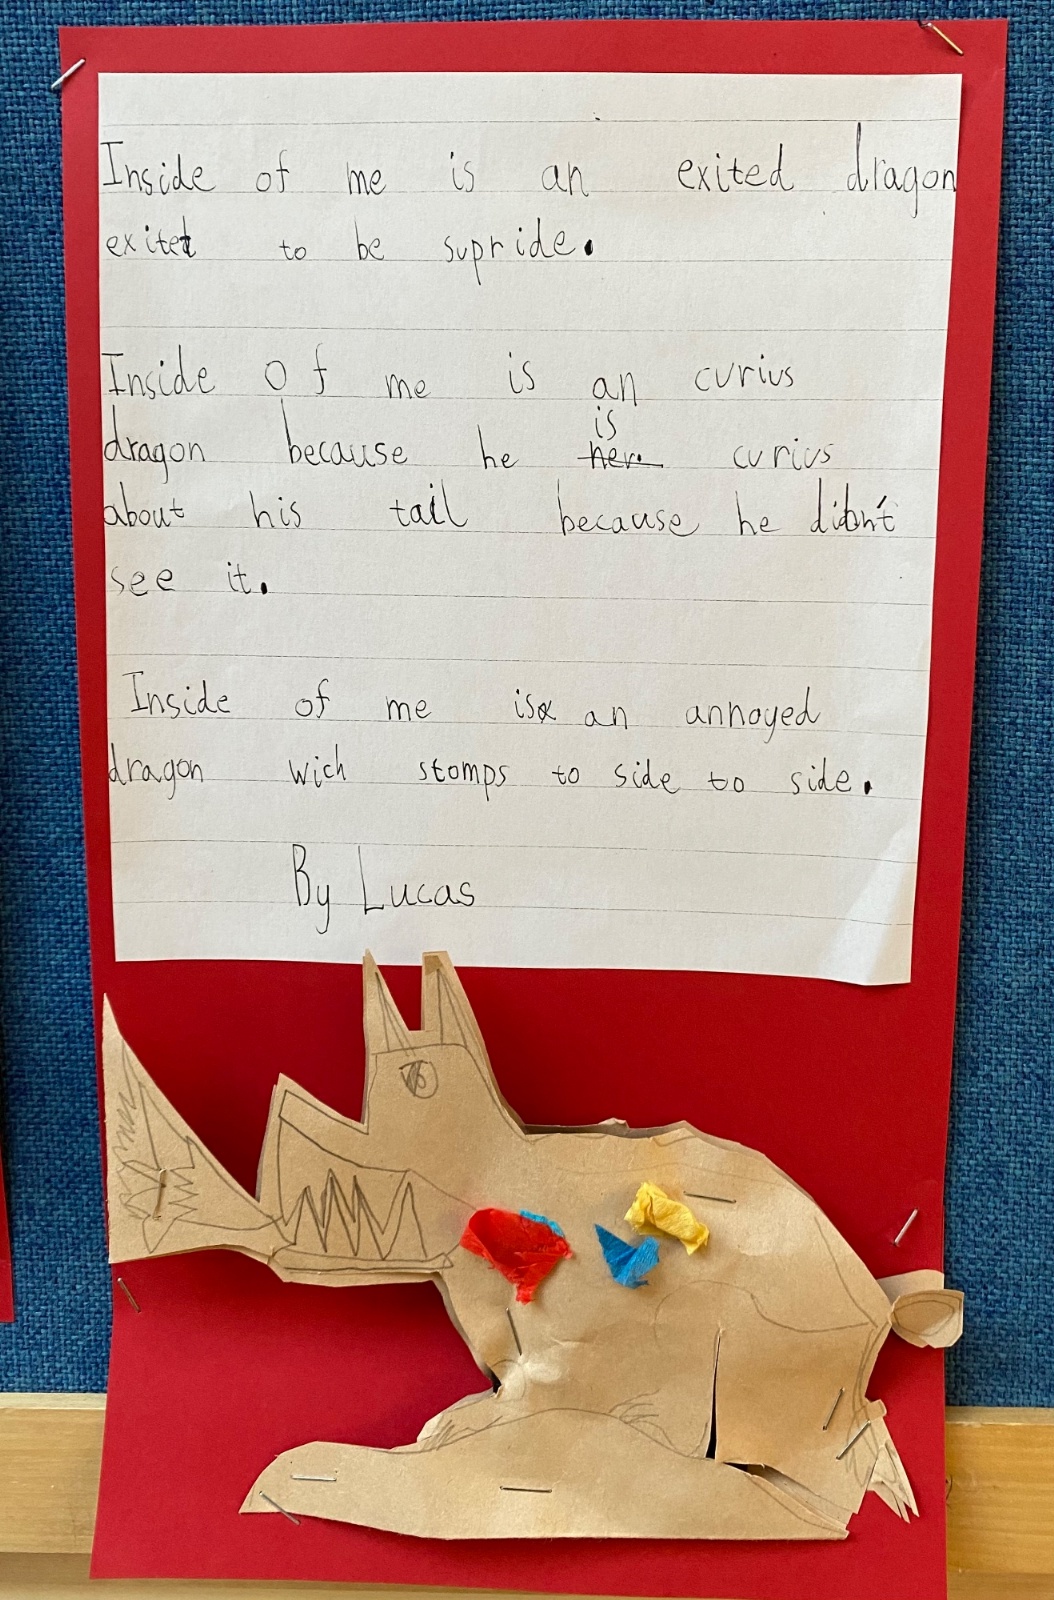 Inside of me is an exited dragon
exitet to be supride.
Inside Of me is an curius
is
dragon because he her. curius
about his tail because he didn't
see it.
Inside of me is an annoyed
dragon wich stomps to side to side.
By Lucas